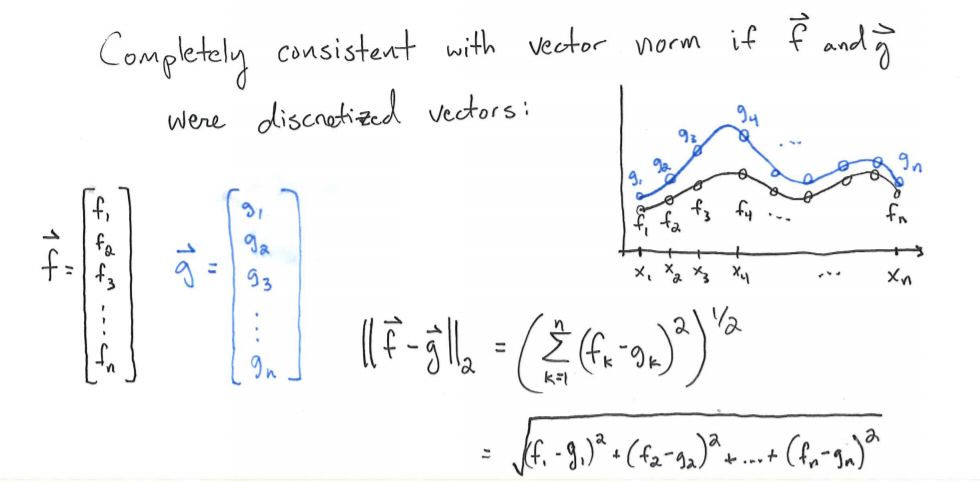 Completely consistent with vector norm if f⃗ and g⃗
were discretized vectors:
g₁ g₂ g₃ g₄ ... gₙ
f₁ f₂ f₃ f₄ ... fₙ
x₁ x₂ x₃ x₄ ... xₙ
f⃗ = [f₁ f₂ f₃ ⋮ fₙ]
g⃗ = [g₁ g₂ g₃ ⋮ gₙ]
‖f⃗ - g⃗‖₂ = (∑ₖ₌₁ⁿ (fₖ - gₖ)²)^1/2
= √((f₁ - g₁)² + (f₂ - g₂)² + ... + (fₙ - gₙ)²)